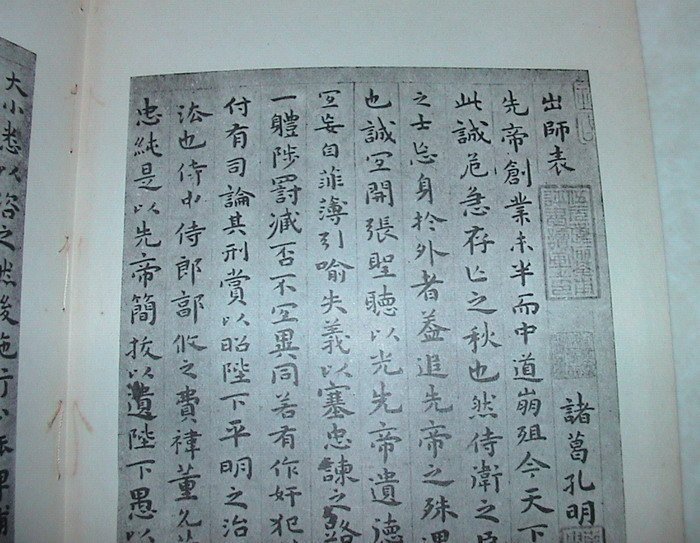 出師表
諸葛孔明
先帝創業未半而中道崩殂今天下
此誠危急存亡之秋也然侍衛之臣
之士忘身於外者蓋追先帝之殊遇
也誠宜開張聖聽以光先帝遺德
宜妄自菲薄引喻失義以塞忠諫之路
一體陟罰臧否不宜異同若有作奸犯
付有司論其刑賞以昭陛下平明之治
法也侍中侍郎郭攸之費禕董允等
忠純是以先帝簡拔以遺陛下愚以
大小悉以咨之然後施行必能裨補